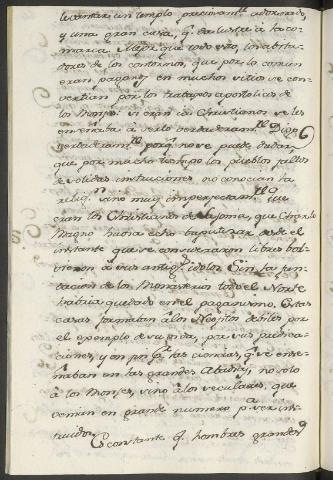 levantar un templo preciosamte. adornado,
y una gran casa, q. da lustre a la co-
marca. Mejor que todo esto, los habita-
dores de los contornos, que por lo comun
eran paganos en muchos vicios se con-
vertian por los trabajos apostolicos de
los Monjes: vi eran ia Christianos se les
enseñaba a serlo verdaderamte.
verdaderamte. porq. no se puede dudar,
que por mucho tiempo los pueblos faltos
de solidas instrucciones no conocian la
relign. sino muy imperfectamte.
eran los Christianos de que Charlo
Magno havia echo baptizar desde el
instante que se conservaron libres bol-
vieron a sus antigs. idolos. Sin las fun-
daciones de los Monasterios todo el Norte
habria quedado en el paganismo. Estas
casas formaban a los Neofitos debiles por
el exemplo de su vida, por sus predica-
ciones, y en fin pr. las ciencias, q. se ense-
ñaban en las grandes Abadias, no solo
à los Monjes, sino à los seculares, que
venian en grande numero a ser ins-
truidos. Es constante q. hombres grandes